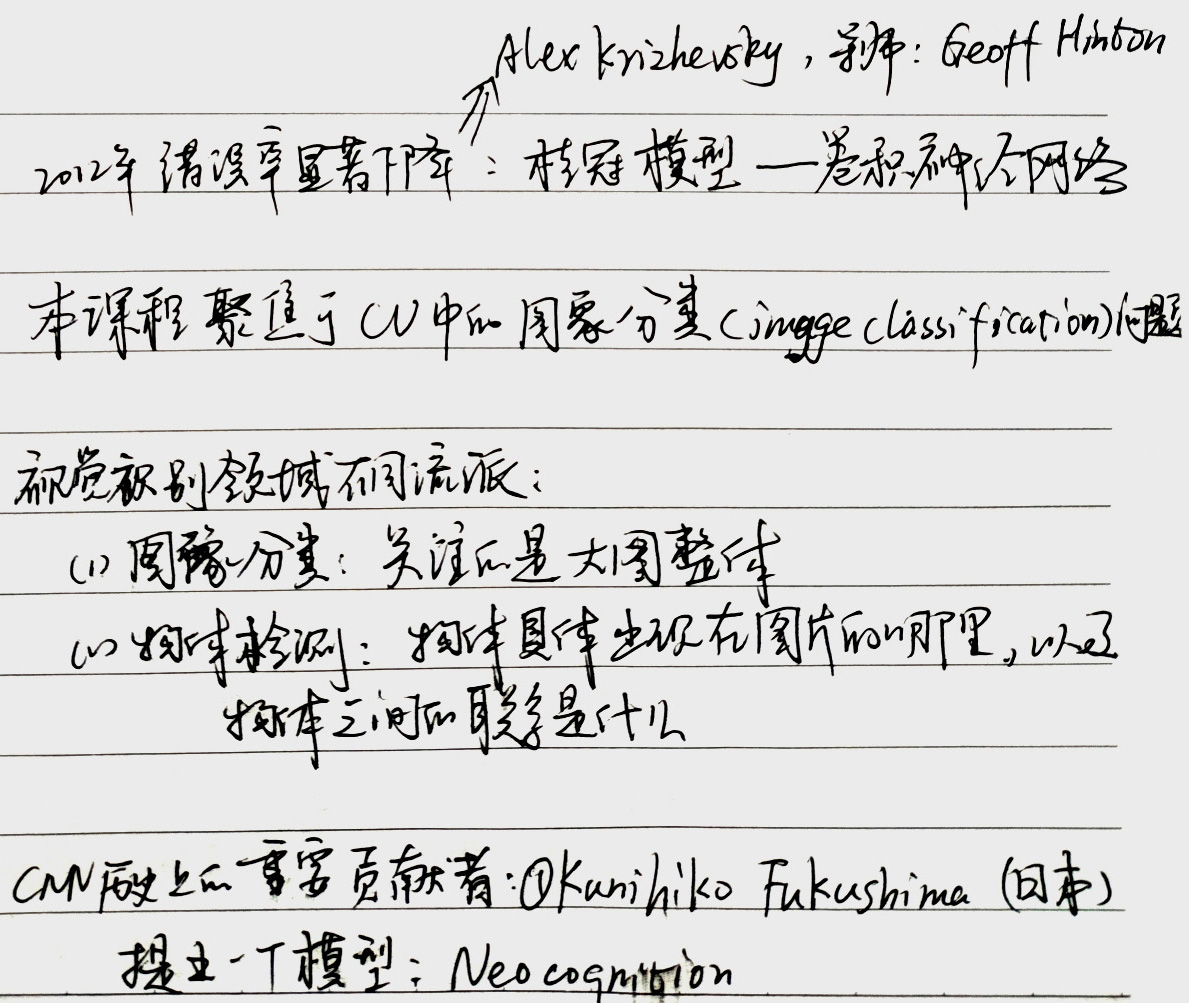 Alex Krizhevsky，导师：Geoff Hinton
2012年 错误率显著下降：桂冠模型—卷积神经网络
本课程聚焦于CV中的图象分类(imgge classification)问题
视觉识别领域不同流派：
(1) 图像分类：关注的是大图整体
(2) 物体检测：物体具体出现在图片的哪里，以及
物体之间的联系是什么
CNN历史上的重要贡献者：①Kunihiko Fukushima (日本)
提出一个模型：Neocognition